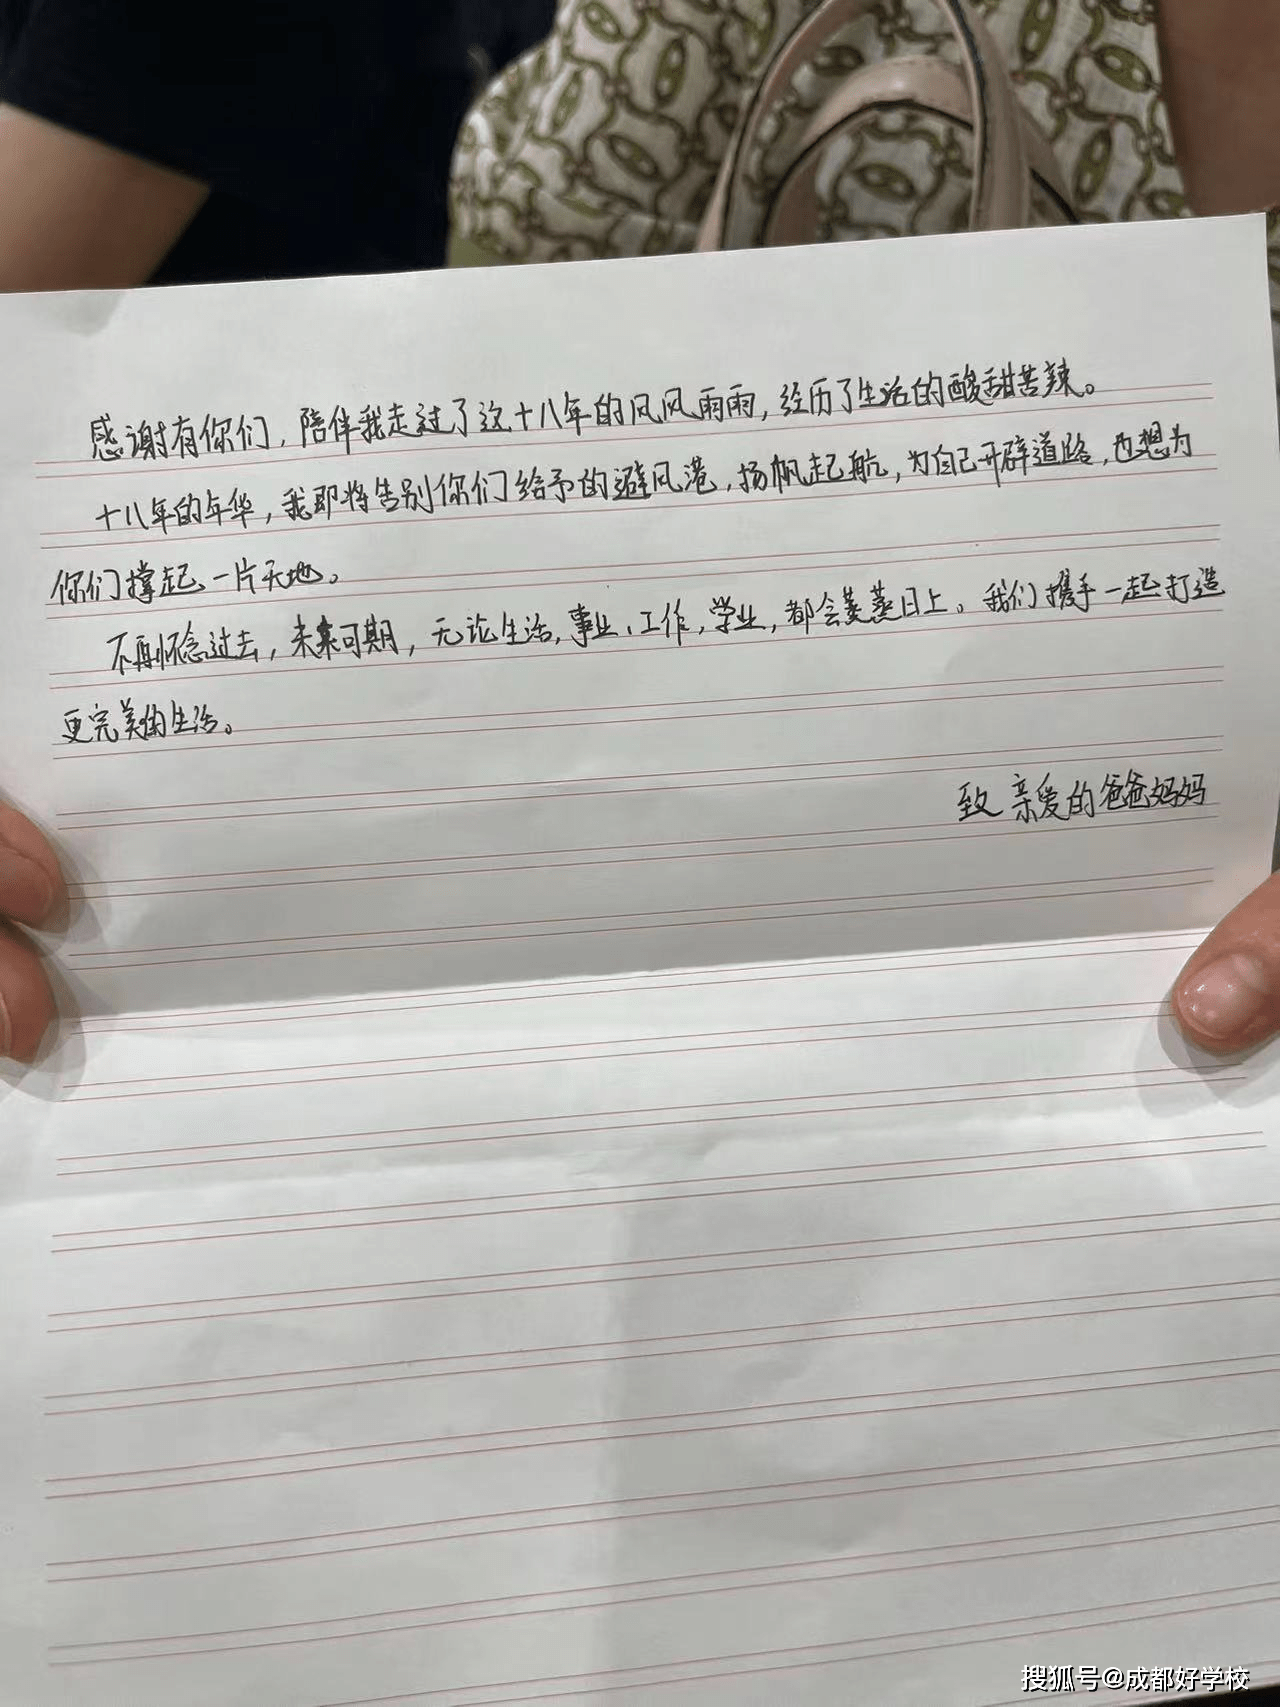 感谢有你们，陪伴我走过了这十八年的风风雨雨，经历了生活的酸甜苦辣。
十八年的年华，我即将告别你们给予的避风港，扬帆起航，为自己开辟道路，也想为
你们撑起一片天地。
不再怀念过去，未来可期，无论生活，事业，工作，学业，都会蒸蒸日上。我们携手一起打造
更完美的生活。
致 亲爱的爸爸妈妈
搜狐号@成都好学校